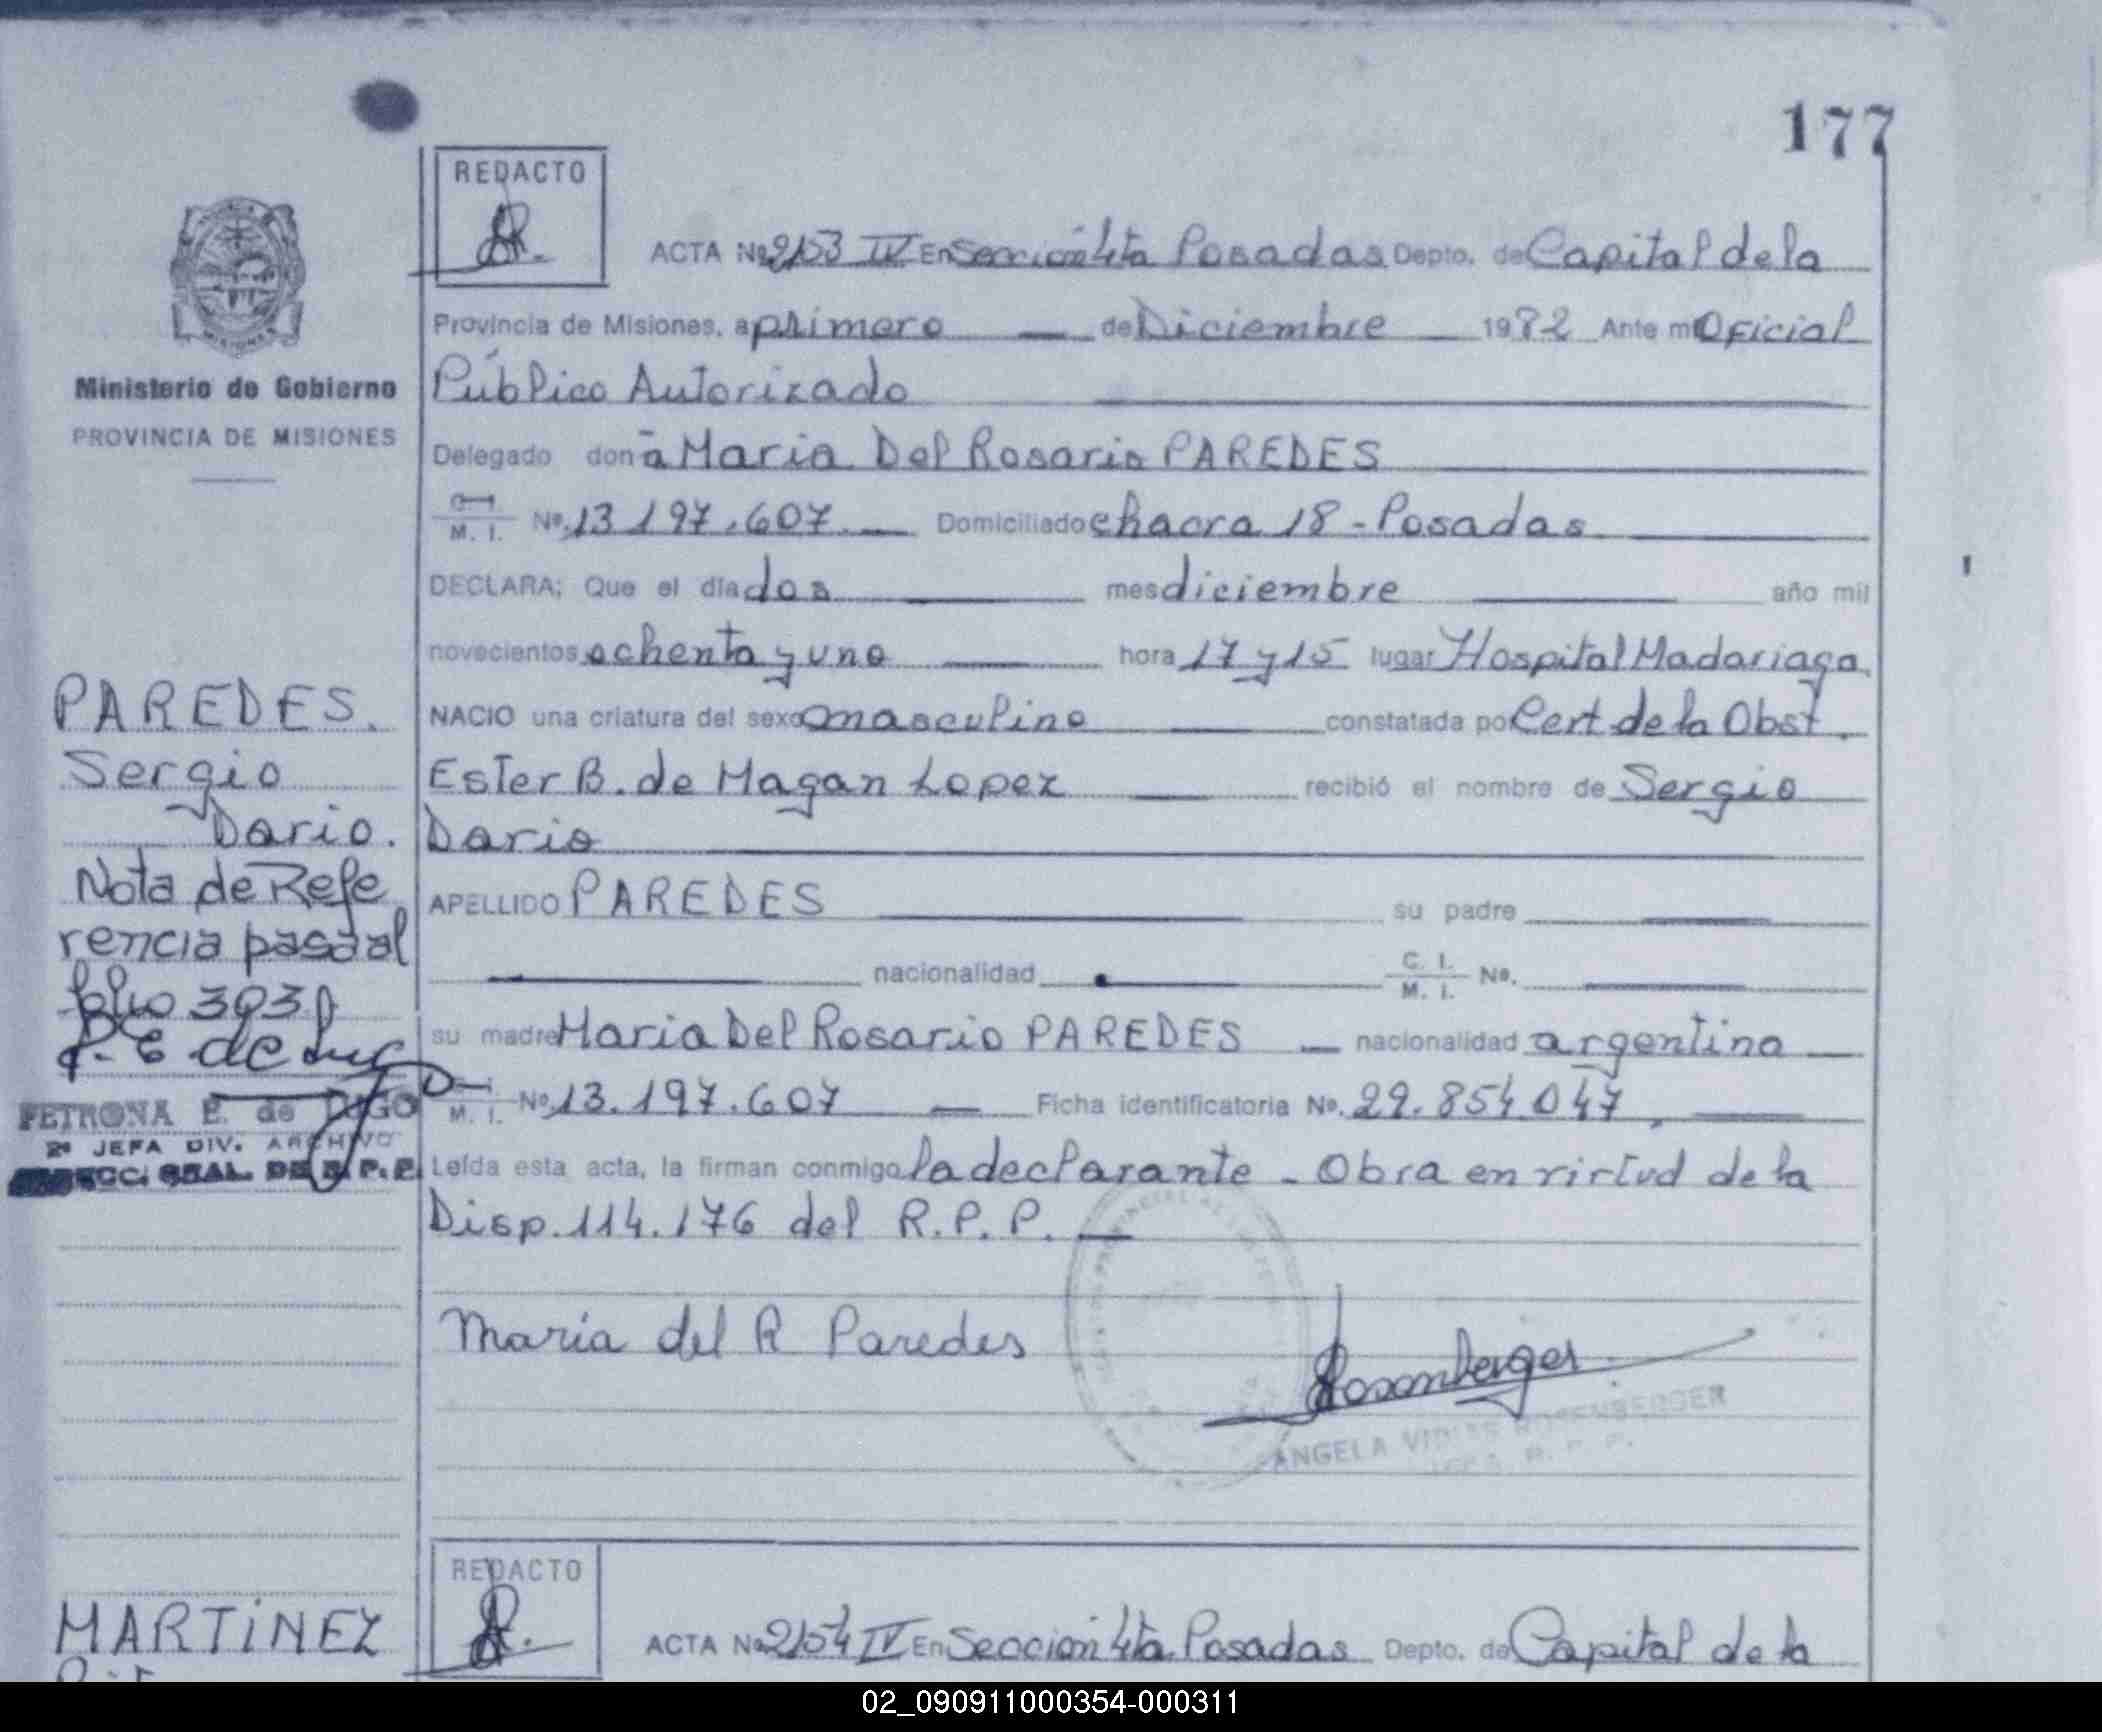 177
REDACTO
ACTA Nº 2153 IV En Sección 4ta Posadas Depto. de Capital de la
Provincia de Misiones, a primero de Diciembre 1982 Ante mi Oficial
Público Autorizado
Delegado don ã Maria Del Rosario PAREDES
M. I. Nº. 13 197.607 Domiciliado chacra 18 - Posadas
DECLARA; Que el día dos mes diciembre año mil
novecientos ochenta y uno hora 17 y 15 lugar Hospital Madariaga
NACIO una criatura del sexo masculino constatada por Cert de la Obst.
Ester B. de Magan Lopez recibió el nombre de Sergio
Dario
APELLIDO PAREDES su padre
nacionalidad C. I. M. I. Nº.
su madre Maria Del Rosario PAREDES nacionalidad argentina
M. I. Nº 13.197.607 Ficha identificatoria Nº. 29.854.047
Leída esta acta, la firman conmigo la declarante - Obra en virtud de la
Disp. 114.176 del R.P.P.
Maria del R Paredes
Rosenberger
ANGELA ROSENBERGER
Ministerio de Gobierno
PROVINCIA DE MISIONES
PAREDES.
Sergio
Dario.
Nota de Refe
rencia pasa al
folio 393
PETRONA E. de
2ª JEFA DIV. ARCHIVO
GRAL. DE R. P. P.
MARTINEZ
REDACTO
ACTA Nº 2154 IV En Seccion 4ta. Posadas Depto. de Capital de la
02_090911000354-000311